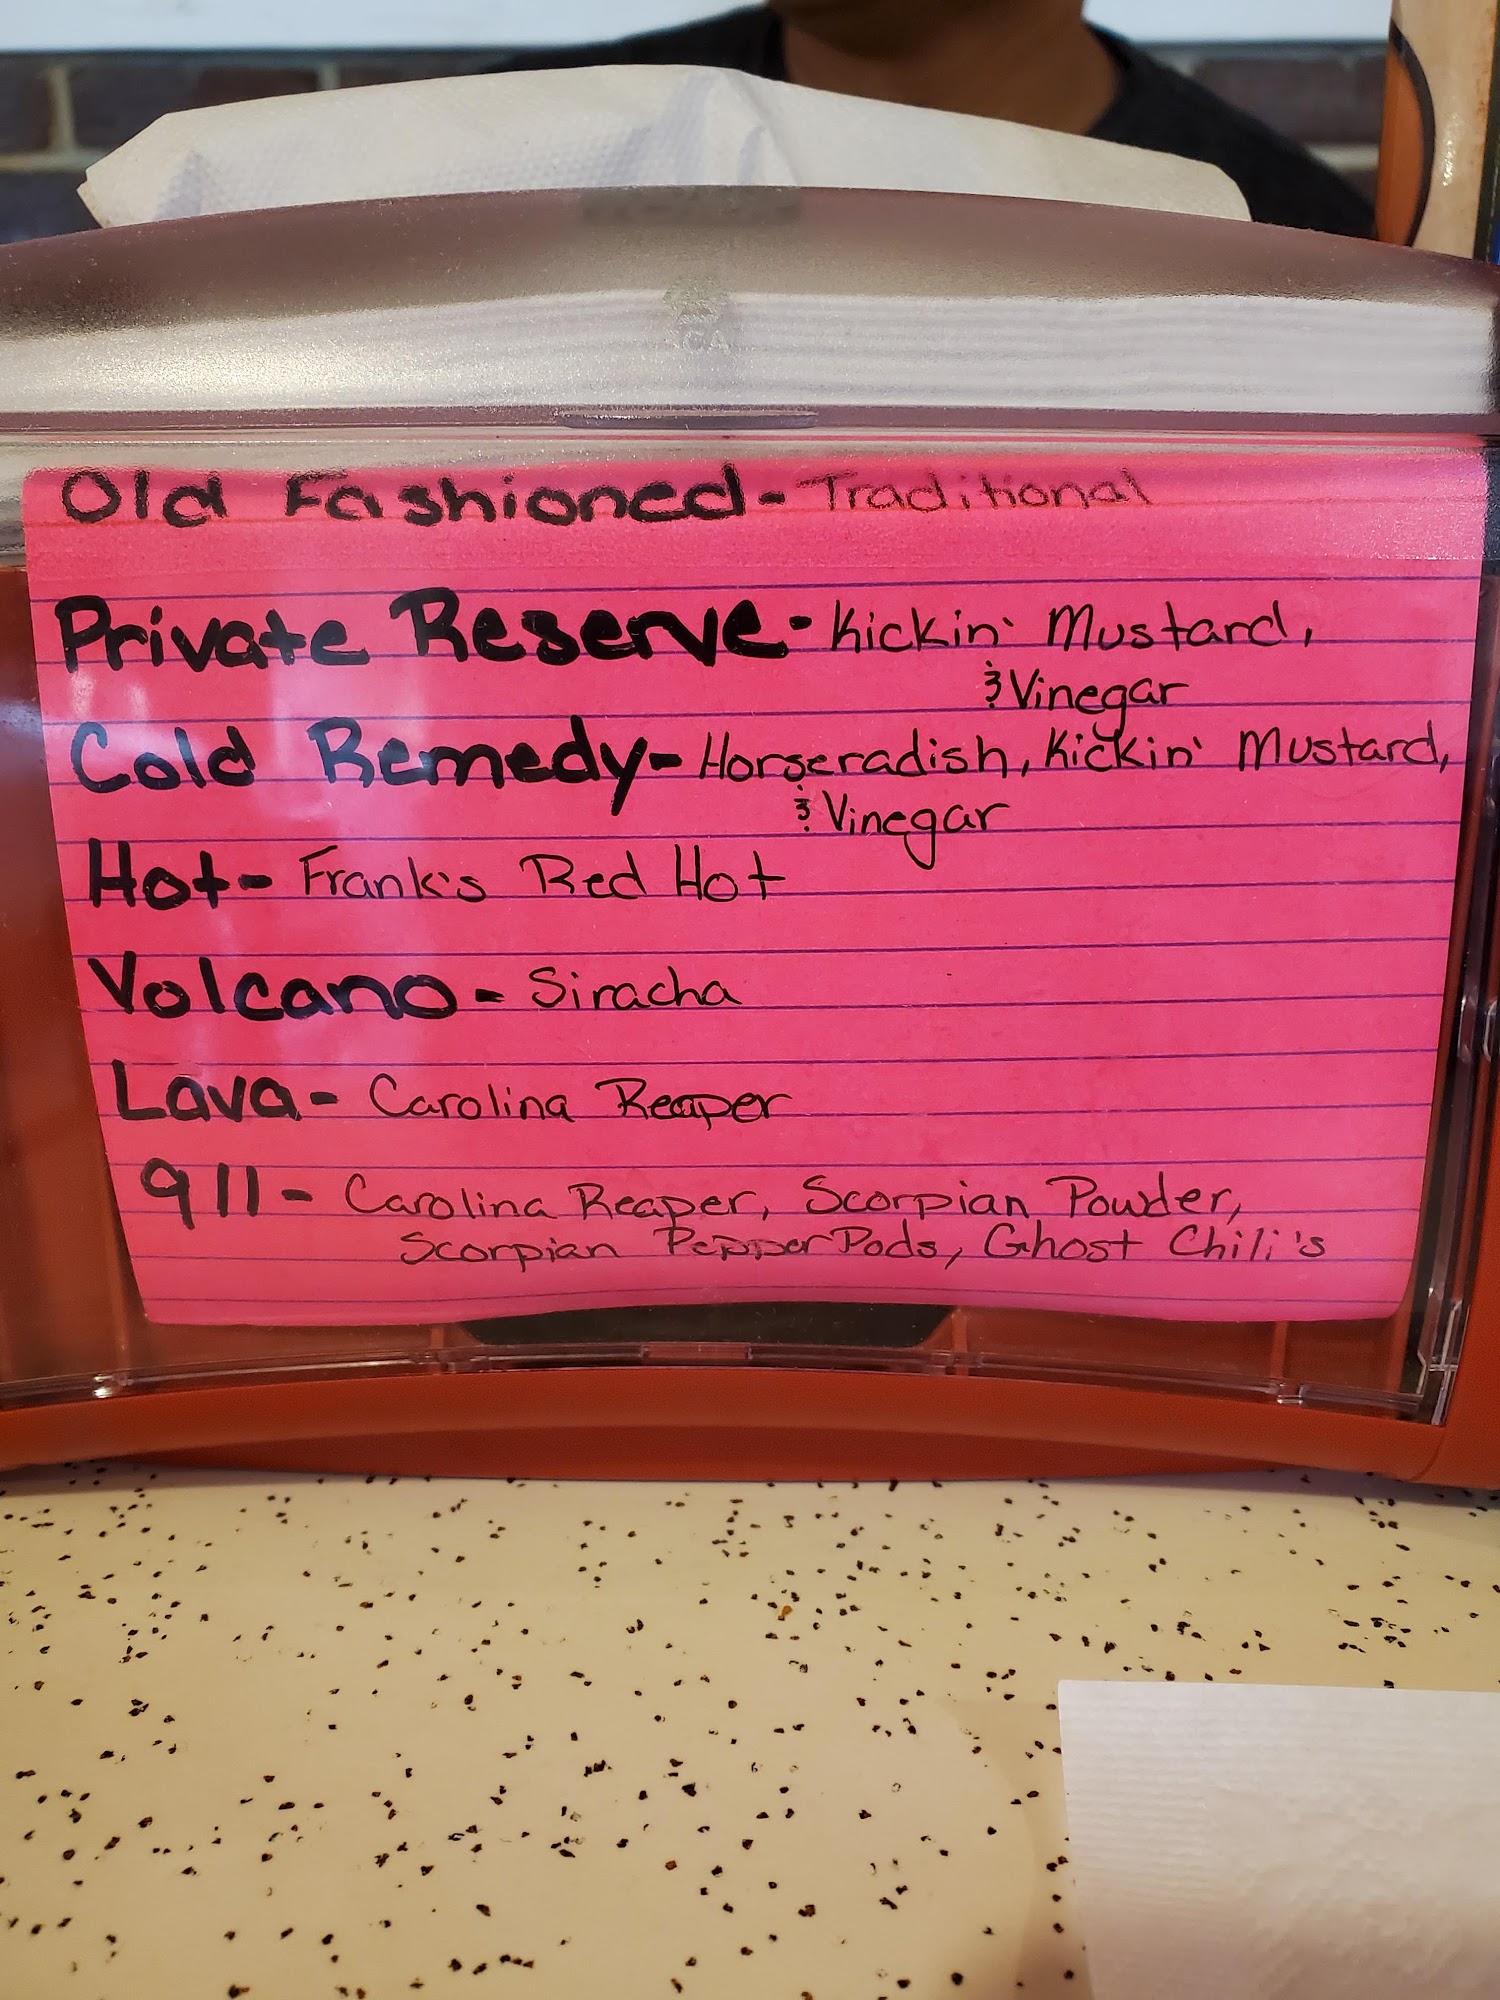 Old Fashioned - Traditional
Private Reserve - Kickin' Mustard,
& Vinegar
Cold Remedy - Horseradish, Kickin' Mustard,
& Vinegar
Hot - Frank's Red Hot
Volcano - Siracha
Lava - Carolina Reaper
911 - Carolina Reaper, Scorpian Powder,
Scorpian Pepper Pods, Ghost Chili's